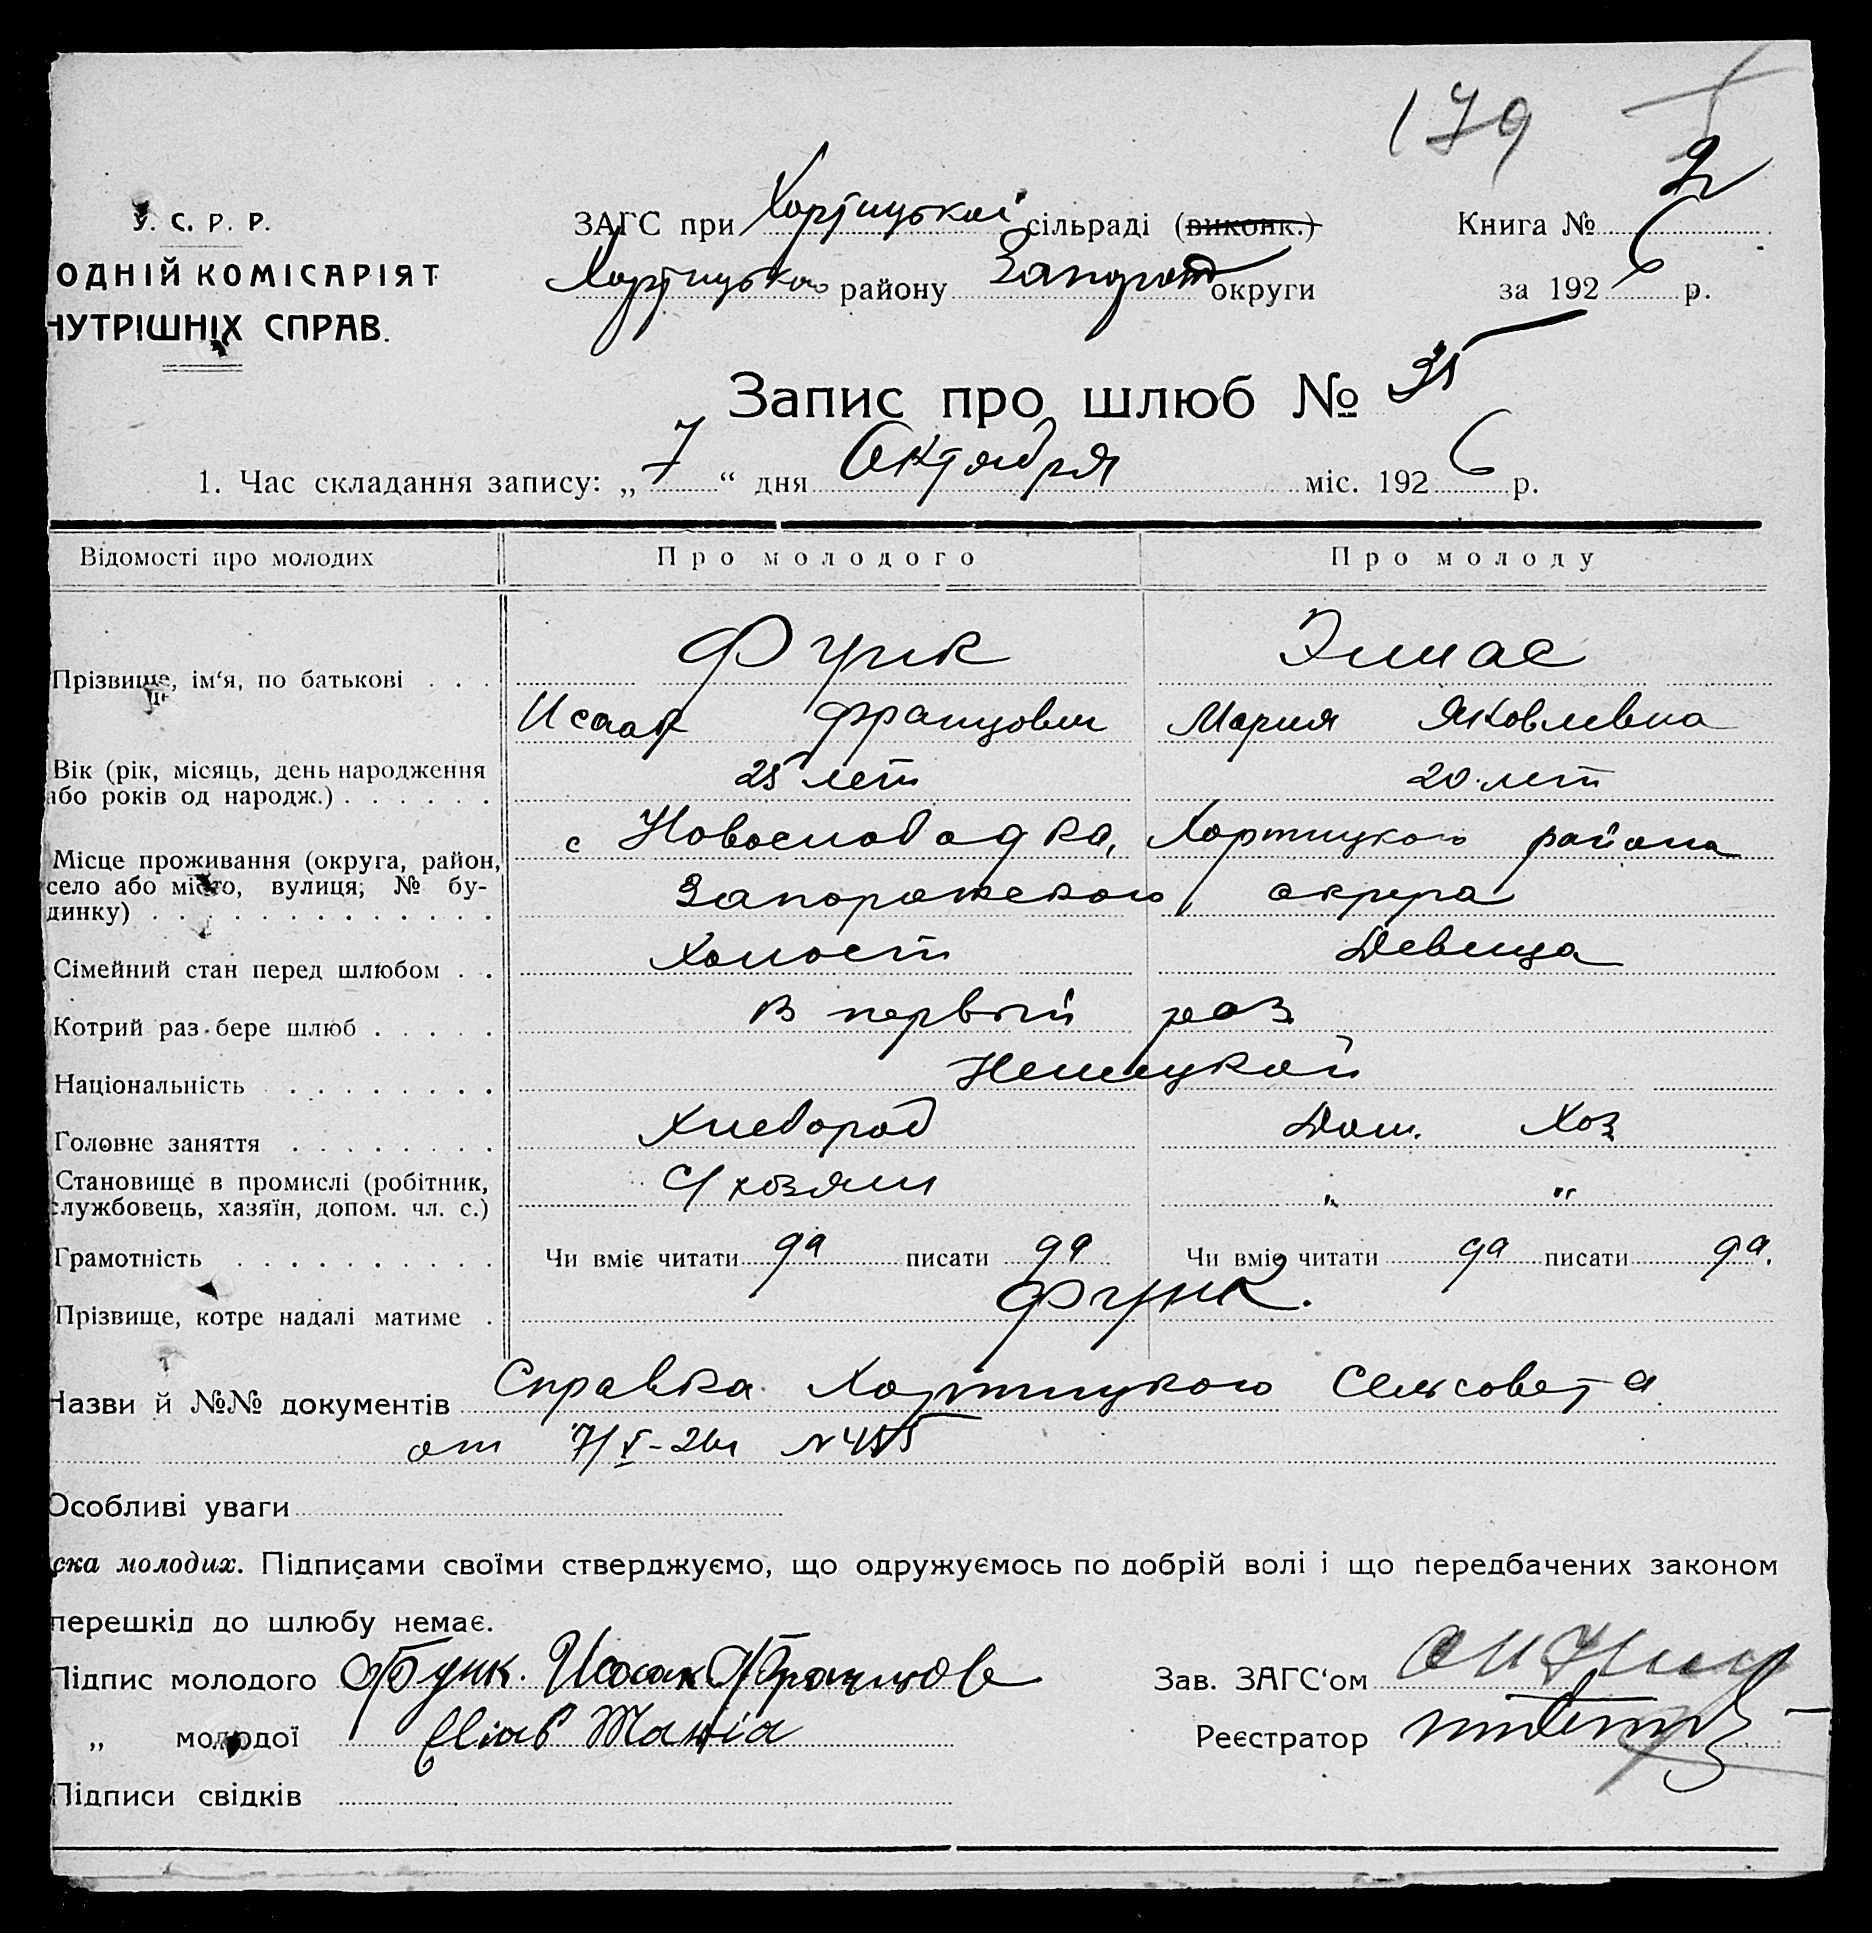 179
У. С. Р. Р.
ОДНІЙ КОМІСАРІЯТ
НУТРІШНІХ СПРАВ.
ЗАГС при Хортицької сільраді (виконк.)
Хортицького району Запорож округи
Книга № 2
за 1926 р.
Запис про шлюб № 35
1. Час складання запису: „7“ дня Октября міс. 1926 р.
Відомості про молодих Про молодого Про молоду
Прізвище, ім‘я, по батькові . . . Функ Эннс
Исаак Францович Мария Яковлевна
Вік (рік, місяць, день народження
або років од народж.) . . . . . . 25 лет 20 лет
Місце проживання (округа, район,
село або місто, вулиця; № бу-
динку) . . . . . . . . . . . . . .
с Новослободка, Хортицкого района
Запорожского округа
Сімейний стан перед шлюбом . . Холост Девица
Котрий раз бере шлюб . . . . . В первый раз
Національність . . . . . . . . . Немецкой
Головне заняття . . . . . . . . Хлебороб Дом. Хоз
Становище в промислі (робітник,
службовець, хазяїн, допом. чл. с.) С/хозяин „ „
Грамотність . . . . . . . . . . Чи вміє читати да писати да Чи вміє читати да писати да.
Прізвище, котре надалі матиме . Функ.
Назви й №№ документів Справка Хортицкого Сельсовета
от 7/X-26г N 455
Особливі уваги
ска молодих. Підписами своїми стверджуємо, що одружуємось по добрій волі і що передбачених законом
перешкід до шлюбу немає.
Підпис молодого Функ. Исаак Францов
„ молодої
Підписи свідків
Зав. ЗАГС‘ом
Реєстратор